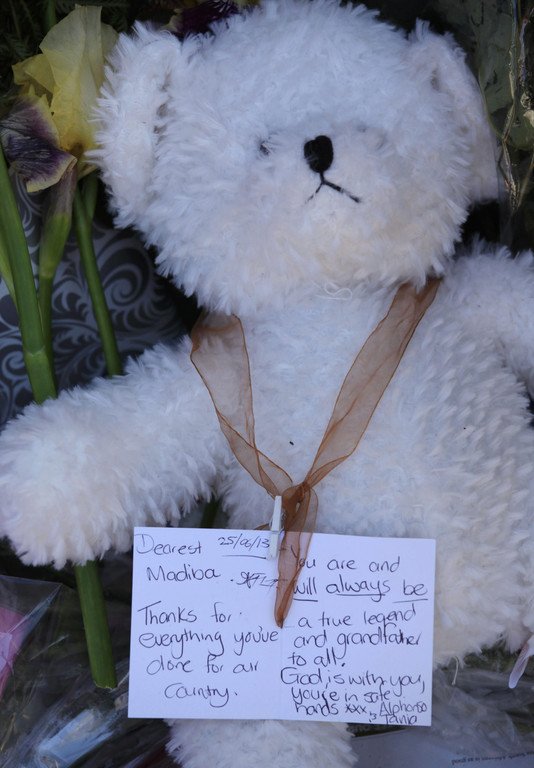 Dearest 25/06/13
Madiba.
Thanks for
everything you've
done for our
country.
You are and
will always be
a true legend
and grandfather
to all.
God is with you,
you're in safe
hands xxx Alphonso
Tania